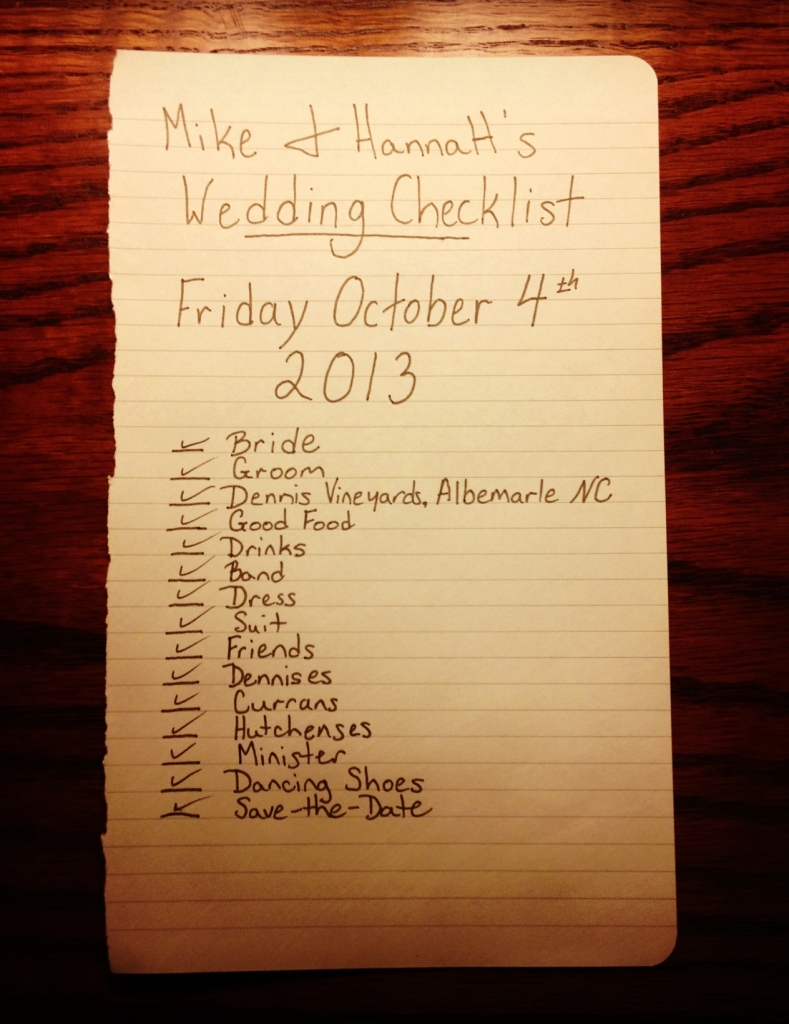 Mike & HannaH's
Wedding Checklist
Friday October 4th
2013
✓ Bride
✓ Groom
✓ Dennis Vineyards, Albemarle NC
✓ Good Food
✓ Drinks
✓ Band
✓ Dress
✓ Suit
✓ Friends
✓ Dennises
✓ Currans
✓ Hutchenses
✓ Minister
✓ Dancing Shoes
✓ Save-the-Date